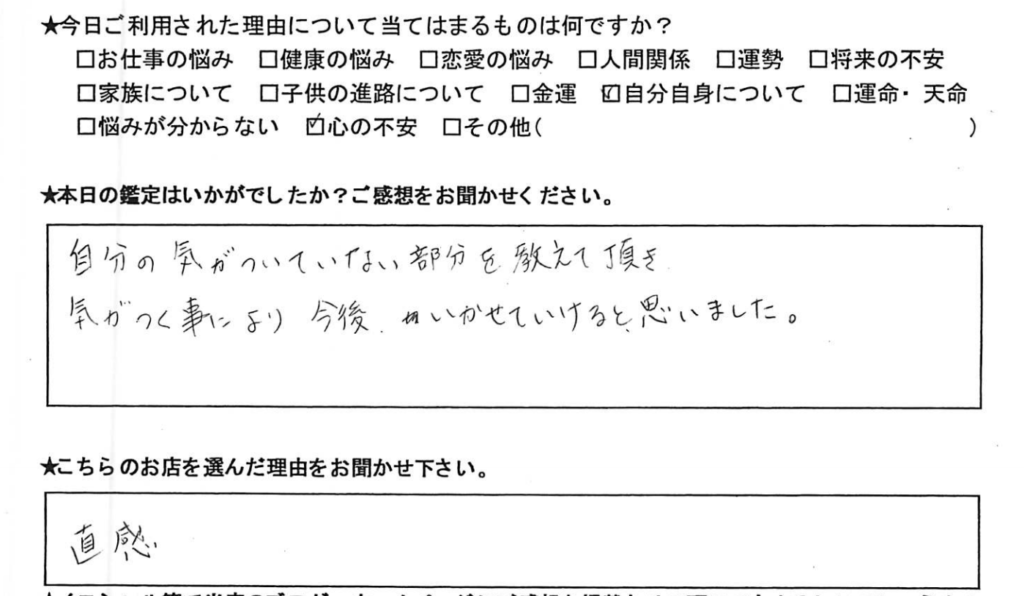 ★今日ご利用された理由について当てはまるものは何ですか？
□お仕事の悩み □健康の悩み □恋愛の悩み □人間関係 □運勢 □将来の不安
□家族について □子供の進路について □金運 ☑自分自身について □運命・天命
□悩みが分からない ☑心の不安 □その他( )
★本日の鑑定はいかがでしたか？ご感想をお聞かせください。
自分の気がついていない部分を教えて頂き
気がつく事により 今後、いかせていけると、思いました。
★こちらのお店を選んだ理由をお聞かせ下さい。
直感